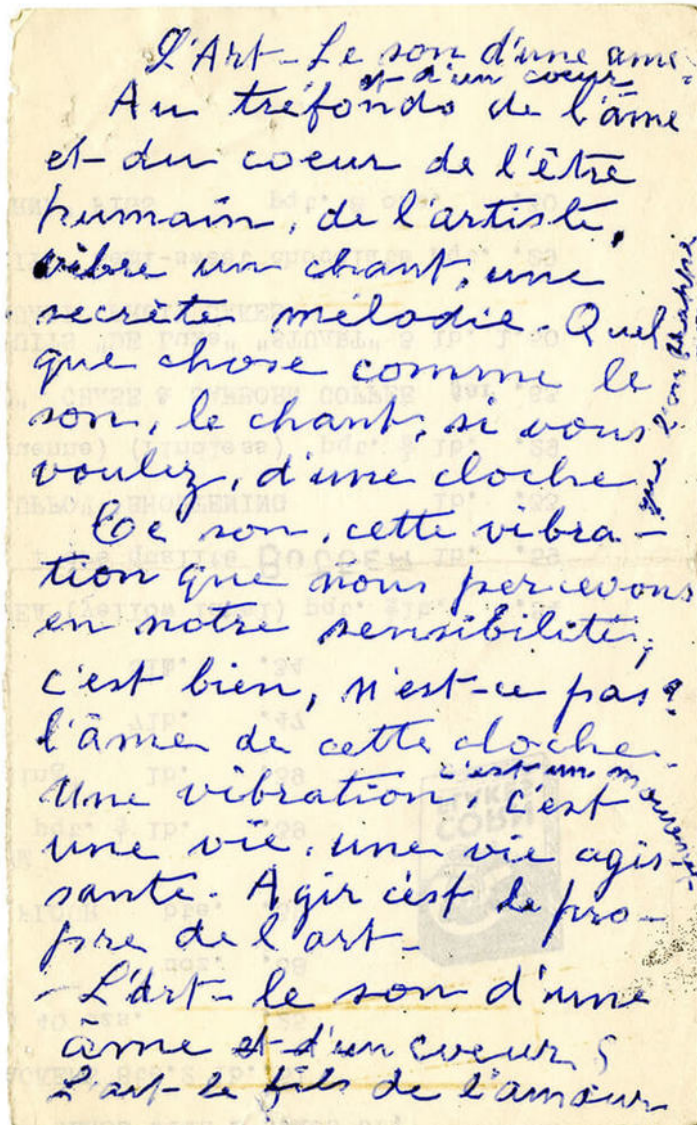 L'Art - Le son d'une âme
et d'un coeur
Au tréfonds de l'âme
et du coeur de l'être
humain, de l'artiste,
vibre un chant, une
secrète mélodie. Quel
que chose comme le
son, le chant, si vous
voulez, d'une cloche
que l'on frappe.
Ce son, cette vibra-
tion que nous percevons
en notre sensibilité,
c'est bien, n'est-ce pas?
l'âme de cette cloche.
Une vibration, c'est un mouvement
c'est
une vie, une vie agis
sante. Agir c'est le pro-
pre de l'art -
- L'Art - le son d'une
âme et d'un coeur,
L'art - le fils de l'amour